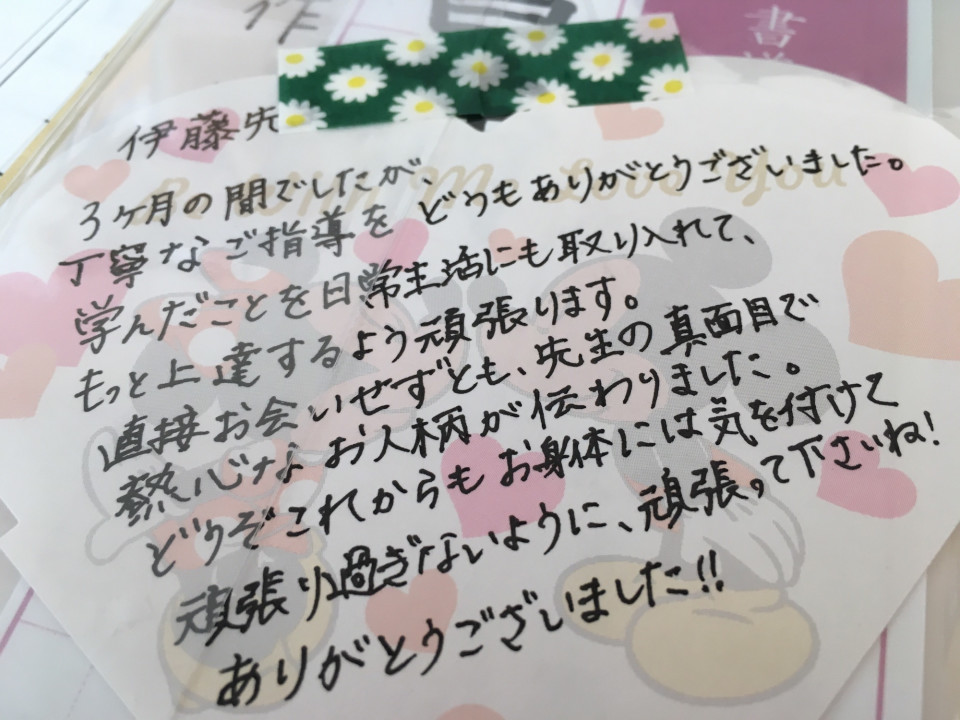 伊藤先
3ヶ月の間でしたが、
丁寧なご指導を どうもありがとうございました。
学んだことを日常生活にも取り入れて、
もっと上達するよう頑張ります。
直接お会いせずとも、先生の真面目で
熱心なお人柄が伝わりました。
どうぞこれからもお身体には気を付けて
頑張り過ぎないように、頑張って下さいね!
ありがとうございました!!
Love You
書道